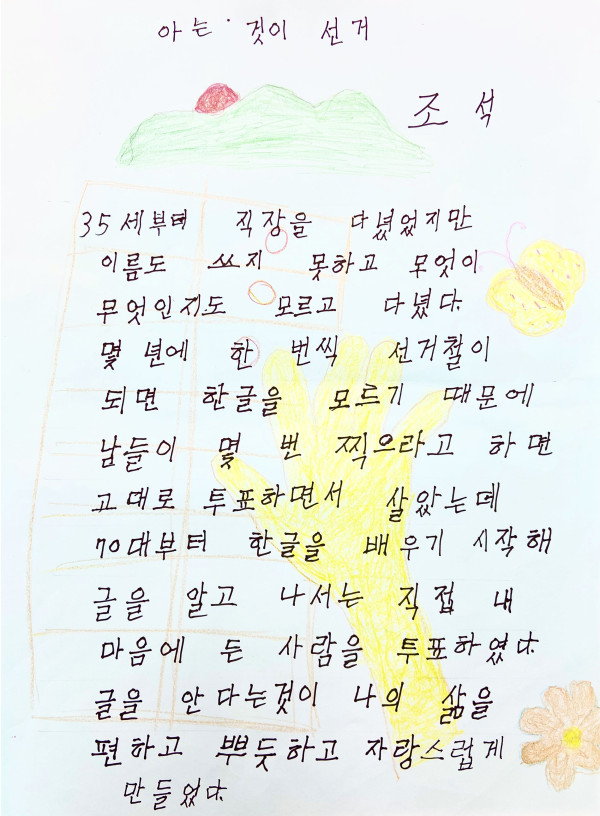 아는 것이 선거
조 석
35세부터 직장을 다녔었지만
이름도 쓰지 못하고 무엇이
무엇인지도 모르고 다녔다.
몇 년에 한 번씩 선거철이
되면 한글을 모르기 때문에
남들이 몇 번 찍으라고 하면
고대로 투표하면서 살았는데
70대부터 한글을 배우기 시작해
글을 알고 나서는 직접 내
마음에 든 사람을 투표하였다.
글을 안다는것이 나의 삶을
편하고 뿌듯하고 자랑스럽게
만들었다.